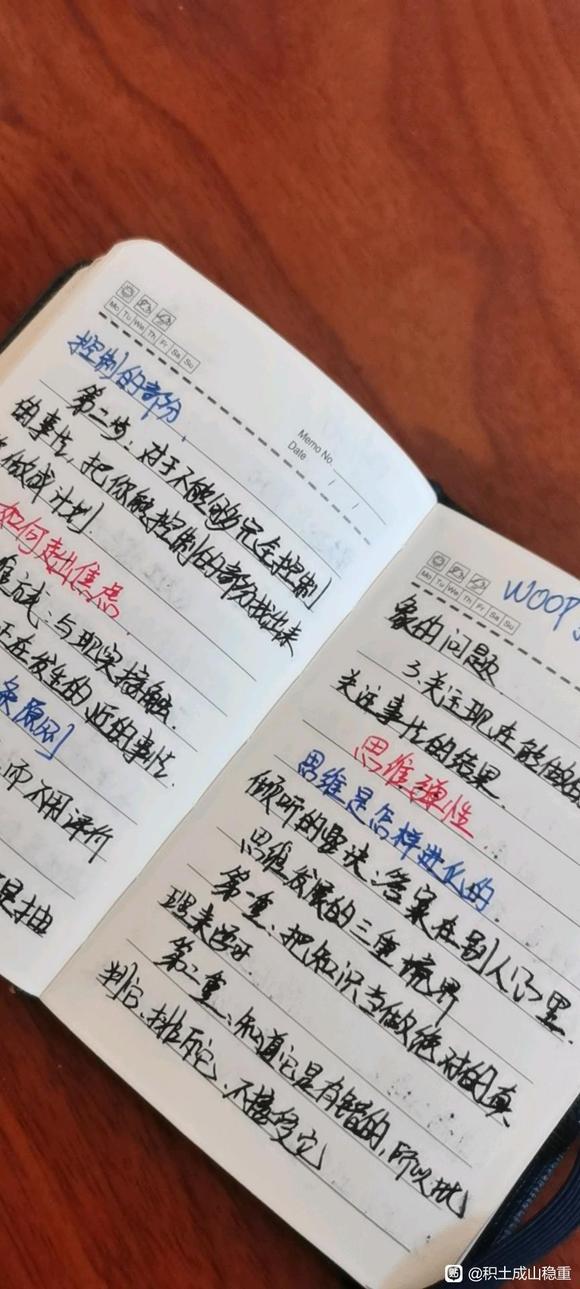 Mo Tu We Th Fr Sa Su
Memo No.
Date / /
控制的部分.
第二步:对于不能够完全控制
的事性,把你能控制的部分找出来
做成计划
如何走出焦虑
应试:与现实接触.
正在发生的近的事性.
条原则
而不用评价
是抽
Mo Tu We Th Fr Sa Su
WOOP
象的问题
3.关注现在能做的
关注事性的结果.
思维弹性
思维是怎样进化的.
倾听的要诀:答案在别人心里.
思维发展的三重境界
第一重、把知识当做绝对的真
理来遵守.
第二重、知道它是有错的,所以批
判它、排斥它、不接受它
@积土成山稳重